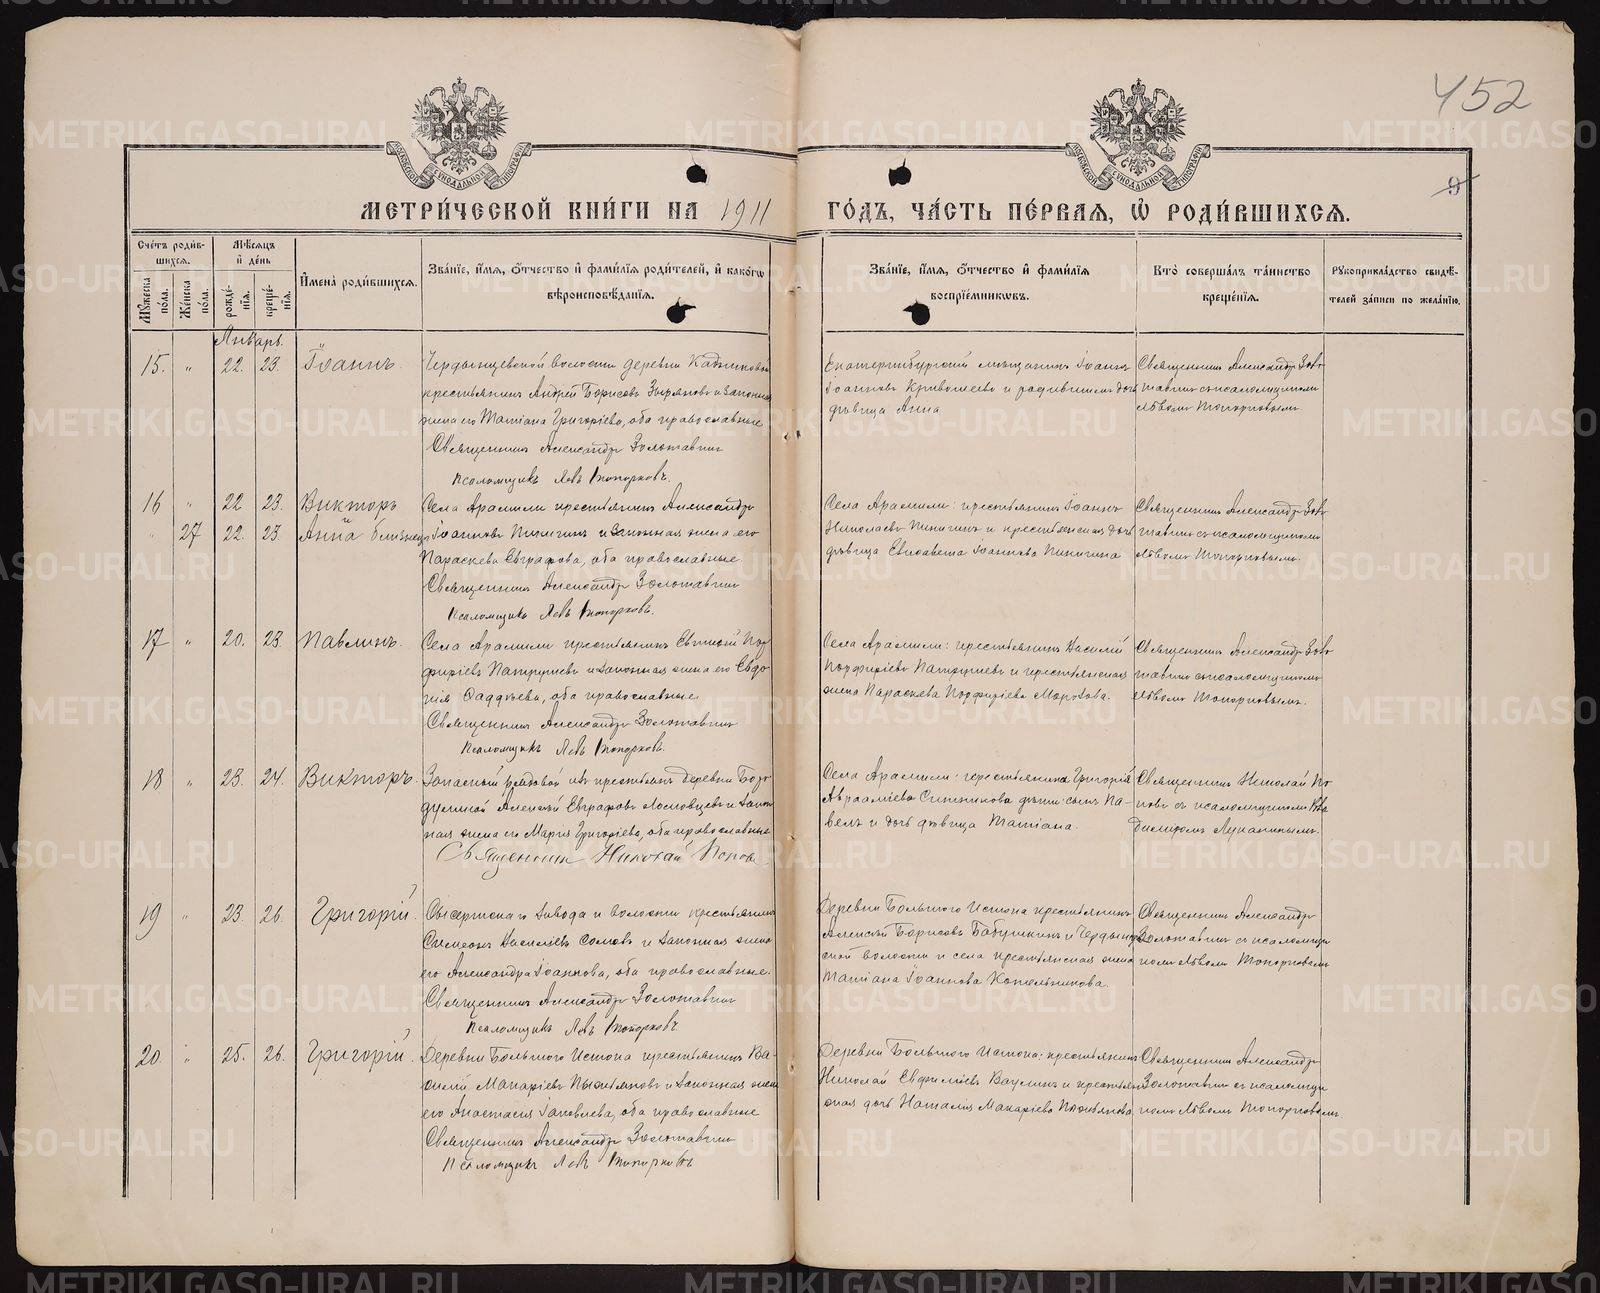 452
9
МОСКОВСКОЙ СѴНОДАЛЬНОЙ ТИПОГРАФІИ
МОСКОВСКОЙ СѴНОДАЛЬНОЙ ТИПОГРАФІИ
МЕТРИ́ЧЕСКОЙ КНИ́ГИ НА 1911
ГО́ДЪ, ЧА́СТЬ ПЕ́РВАѦ, Ѡ҆ РОДИ́ВШИХСѦ.
Сче́тъ роди́в-
шихсѧ.
Мꙋ́жеска по́ла.
Же́нска по́ла.
Мѣ́сѧцъ
и҆ де́нь
рожде́-нїѧ.
креще́-нїѧ.
И҆мена̀ роди́вшихсѧ.
Зва́нїе, и҆́мѧ, ѻ҆́тчество и҆ фами́лїѧ роди́телей, и҆ како́гѡ
вѣроисповѣ́данїѧ.
Зва́нїе, и҆́мѧ, ѻ҆́тчество и҆ фами́лїѧ
воспрїе́мникѡвъ.
Кто̀ соверша́лъ та́инство
креще́нїѧ.
Рꙋкоприкла́дство свидѣ́-
телей за́писи по жела́нїю.
Январь.
15. " 22. 23. Іоаннъ.
волости деревни
крестьянинъ Андрей Борисовъ Зыряновъ и законная
жена его Татіана Григоріева, оба православные
Священникъ Александръ Золотавинъ
Псаломщикъ Левъ Топорковъ.
Екатеринбургскій мѣщанинъ Іоаннъ
Іоанновъ Кривошеевъ и родившихъ дочь
дѣвица Анна
Священникъ Александръ Золо
тавинъ съ псаломщикомъ
Львомъ Топорковымъ.
16 " 22 23. Викторъ
" 27 22. 23. Анна близнецы
Села Арамили крестьянинъ Александръ
Іоанновъ Пинигинъ и законная жена его
Параскева Евграфова, оба православные
Священникъ Александръ Золотавинъ
Псаломщикъ Левъ Топорковъ.
Села Арамили: крестьянинъ Іоаннъ
Николаевъ Пинигинъ и крестьянская дочь
дѣвица Елисавета Іоаннова Пинигина
Священникъ Александръ Золо
тавинъ съ псаломщикомъ
Львомъ Топорковымъ.
17 " 20. 23. Павлинъ.
Села Арамили крестьянинъ Евгеній Пор
фиріевъ Патрушевъ и законная жена его Евдо
кія Фаддѣева, оба православные
Священникъ Александръ Золотавинъ
Псаломщикъ Левъ Топорковъ.
Села Арамили: крестьянинъ Василій
Порфиріевъ Патрушевъ и крестьянская
жена Параскева Порфиріева Морозова.
Священникъ Александръ Золо
тавинъ съ псаломщикомъ
Львомъ Топорковымъ.
18 " 23. 24. Викторъ.
Запасный рядовой изъ крестьянъ деревни Боро
дулиной Алексѣй Евграфовъ и закон
ная жена его Марія Григоріева, оба православные
Священникъ Николай Поповъ.
Села Арамили: крестьянина Григорія
Авраамiева Ситникова дѣти: сынъ Па-
велъ и дочь дѣвица Татіана.
Священникъ Николай По
повъ съ псаломщикомъ Вла
диміромъ Луканинымъ.
19 " 23. 26. Григорій.
Сысертскаго завода и волости крестьянинъ
Симеонъ Василіевъ Сомовъ и законная жена
его Александра Іоаннова, оба православные.
Священникъ Александръ Золотавинъ
Псаломщикъ Левъ Топорковъ.
Деревни Большого Истока крестьянинъ
Алексѣй Борисовъ Бабушкинъ и
ской волости и села крестьянская жена
Татіана Іоаннова Котельникова.
Священникъ Александръ
Золотавинъ съ псаломщи
комъ Львомъ Топорковымъ
20. " 25. 26. Григорій.
Деревни Большого Истока крестьянинъ Ва-
силій Макаріевъ и законная жена
его Анастасія Іаковлева, оба православные
Священникъ Александръ Золотавинъ
Псаломщикъ Левъ Топорковъ
Деревни Большого Истока: крестьянинъ
Николай Евфиміевъ Ваулинъ и крестьян
ская дочь Наталія Макаріева
Священникъ Александръ
Золотавинъ съ псаломщи
комъ Львомъ Топорковымъ
METRIKI.GASO-URAL.RU